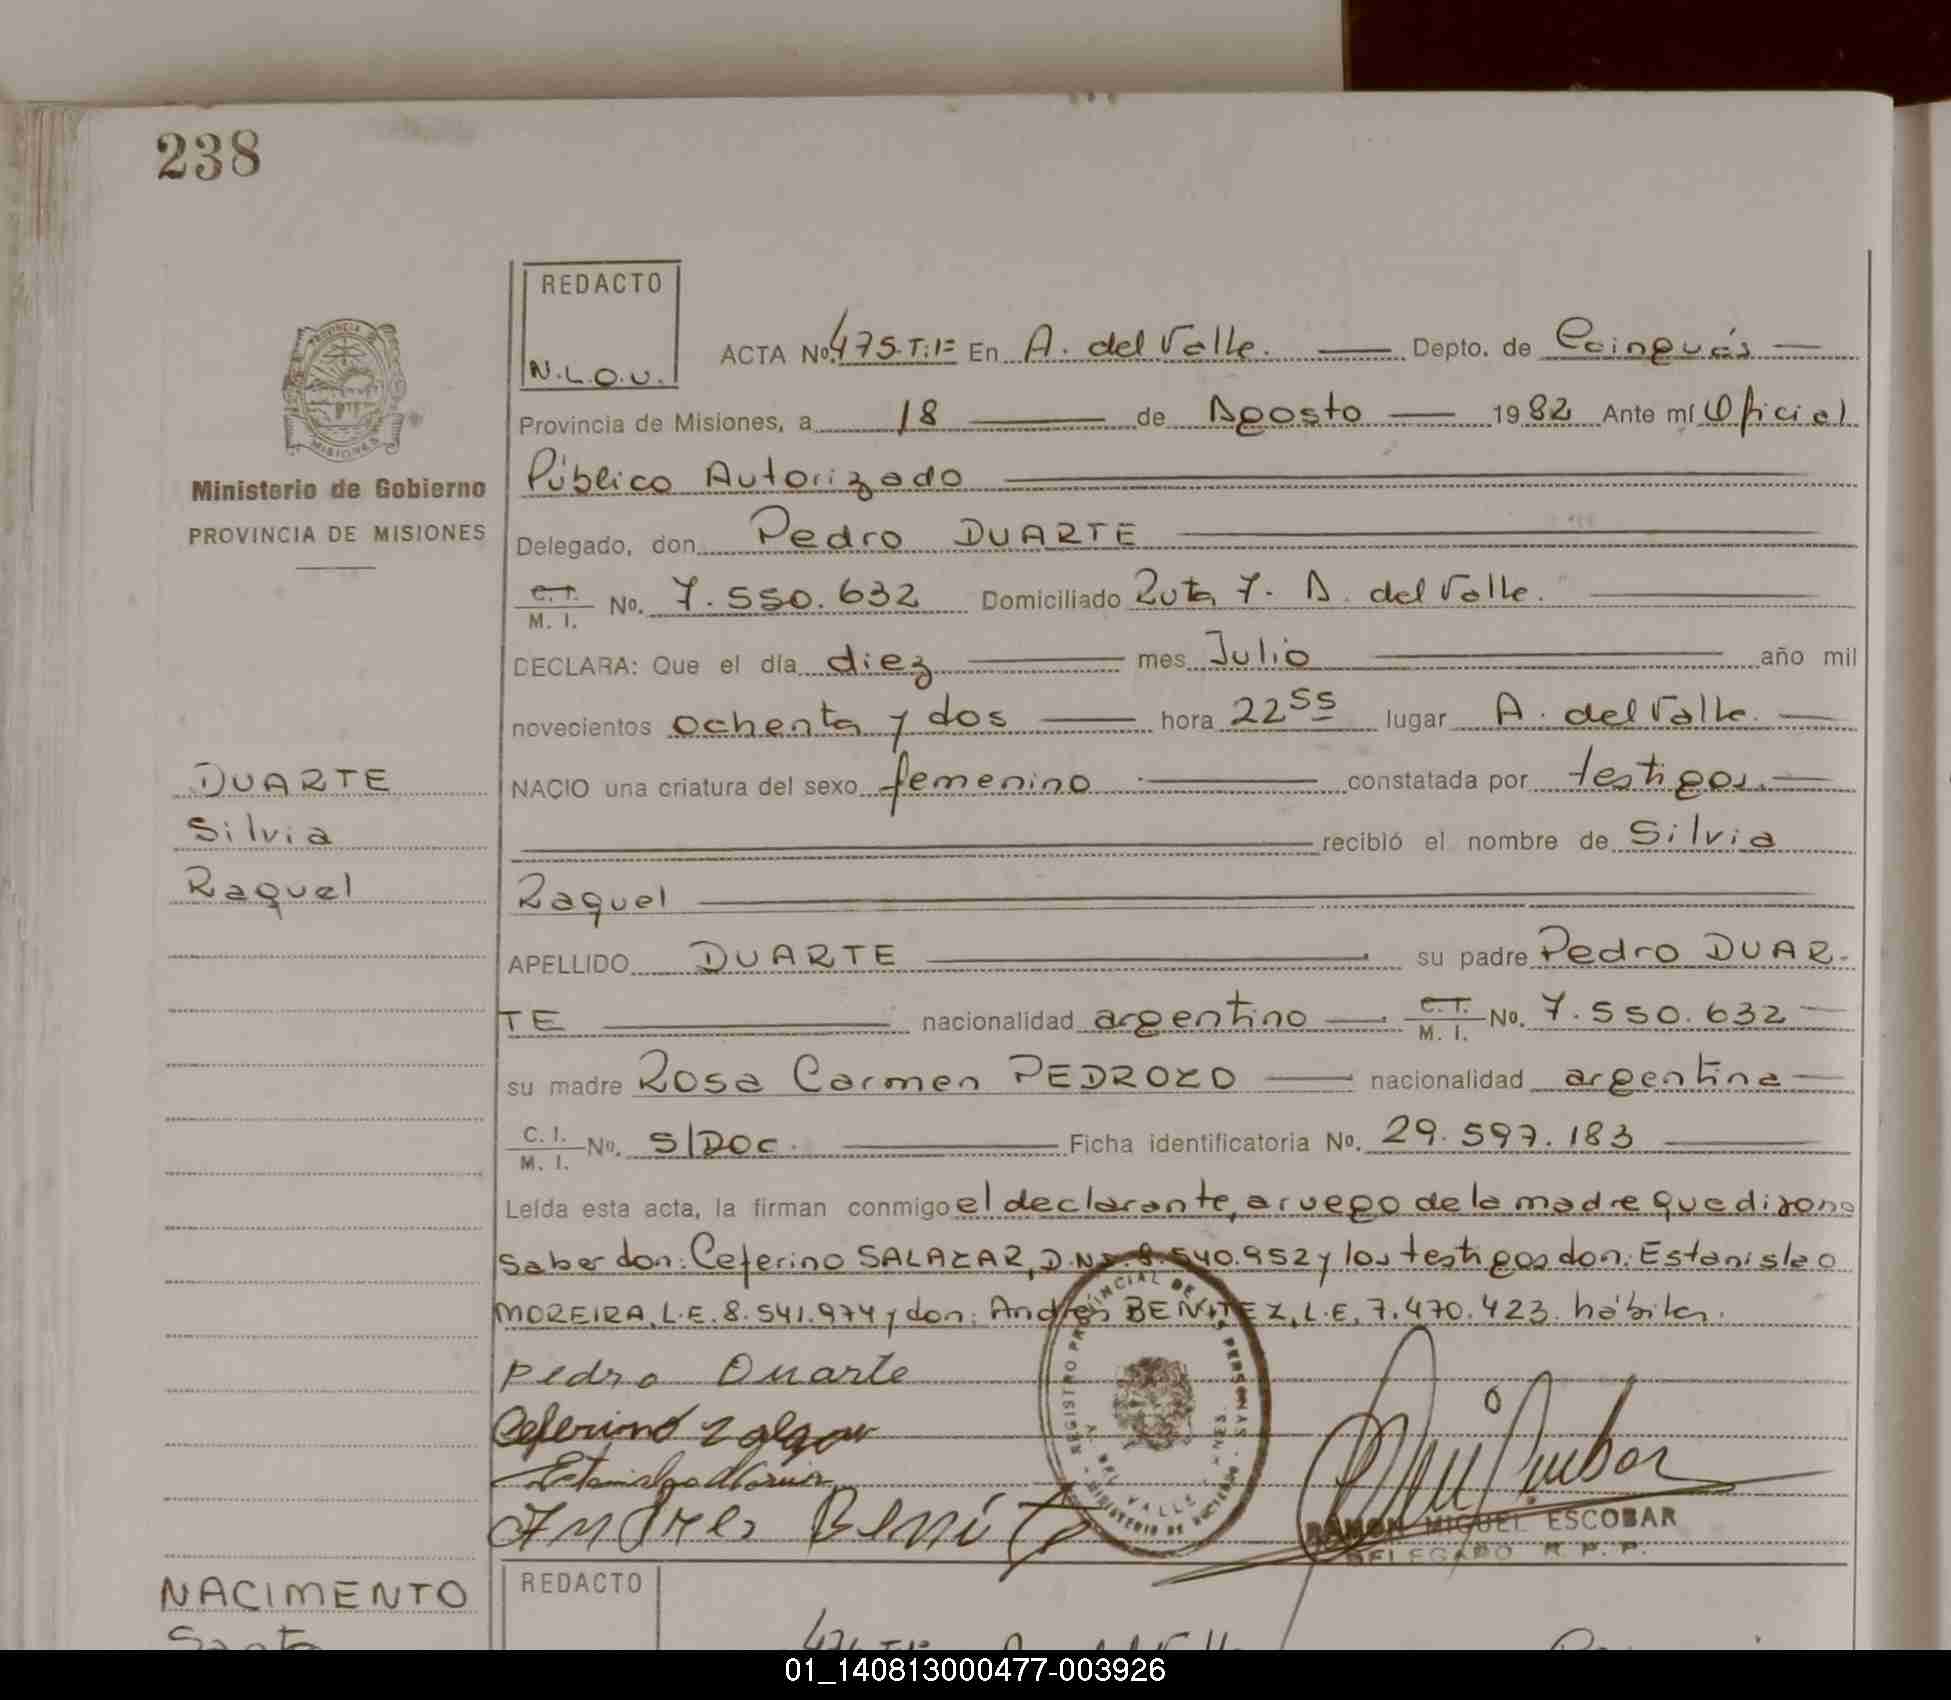 238
REDACTO
N.L.O.U.
PROVINCIA DE
MISIONES
Ministerio de Gobierno
PROVINCIA DE MISIONES
ACTA No. 475.T:1= En A. del Valle. Depto. de Cainguás
Provincia de Misiones, a 18 de Agosto 1982 Ante mí Oficial
Público Autorizado
Delegado, don Pedro DUARTE
C.I. M. I. No. 7.550.632 Domiciliado Ruta 7. A. del Valle.
DECLARA: Que el día diez mes Julio año mil
novecientos ochenta y dos hora 22 55 lugar A. del Valle.
NACIO una criatura del sexo femenino constatada por testigos.
recibió el nombre de Silvia
Raquel
DUARTE
Silvia
Raquel
APELLIDO DUARTE su padre Pedro DUAR-
TE nacionalidad argentino C.I. M. I. No. 7.550.632
su madre Rosa Carmen PEDROZO nacionalidad argentina
C. I. M. I. No. S/DOC. Ficha identificatoria No. 29.597.183
Leída esta acta, la firman conmigo el declarante, a ruego de la madre que dijo no
saber don: Ceferino SALAZAR, D.N.I. 8.540.952 y los testigos don: Estanislao
MOREIRA, L.E. 8.541.974 y don: Andrés BENITEZ, L.E. 7.470.423. hábiles.
Pedro Duarte
Ceferino
Andres Benitez
REGISTRO PROVINCIAL DE LAS PERSONAS
A. DEL VALLE
RAMON MIGUEL ESCOBAR
DELEGADO R. P. P.
NACIMENTO
REDACTO
01_140813000477-003926